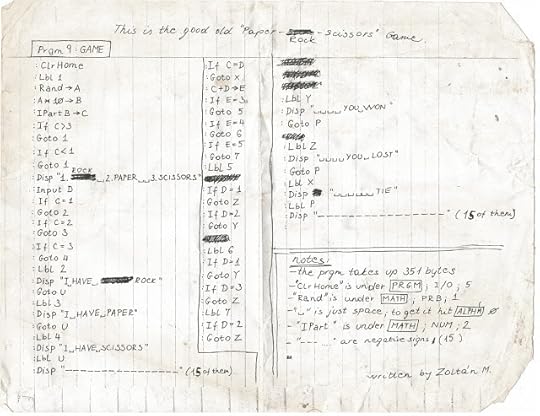 This is the good old "Paper - Rock - scissors" Game.
Prgm9:GAME
:ClrHome
:Lbl 1
:Rand→A
:A*10→B
:IPart B→C
:If C>3
:Goto 1
:If C<1
:Goto 1
:Disp "1.ROCK␣␣2.PAPER␣␣3.SCISSORS"
:Input B
:If C=1
:Goto 2
:If C=2
:Goto 3
:If C=3
:Goto 4
:Lbl 2
:Disp "I␣HAVE␣ROCK"
:Goto U
:Lbl 3
:Disp "I␣HAVE␣PAPER"
:Goto U
:Lbl 4
:Disp "I␣HAVE␣SCISSORS"
:Lbl U
:Disp "---------------" (15 of them)
:If C=D
:Goto X
:C+D→E
:If E=3
:Goto 5
:If E=4
:Goto 6
:If E=5
:Goto 7
:Lbl 5
:If D=1
:Goto Z
:If D=2
:Goto Y
:Lbl 6
:If D=1
:Goto Y
:If D=3
:Goto Z
:Lbl 7
:If D=2
:Goto Z
:Lbl Y
:Disp "␣␣␣␣YOU␣WON"
:Goto P
:Lbl Z
:Disp "␣␣␣␣YOU␣LOST"
:Goto P
:Lbl X
:Disp "␣␣␣␣␣␣TIE"
:Lbl P
:Disp "---------------" (15 of them)
notes:
-the prgm takes up 351 bytes
-"ClrHome" is under PRGM; I/O; 5
-"Rand" is under MATH, PRB, 1
-"␣" is just space; to get it hit ALPHA 0
-"IPart" is under MATH; NUM; 2
-"----" are negative signs (15)
written by Zoltán M.